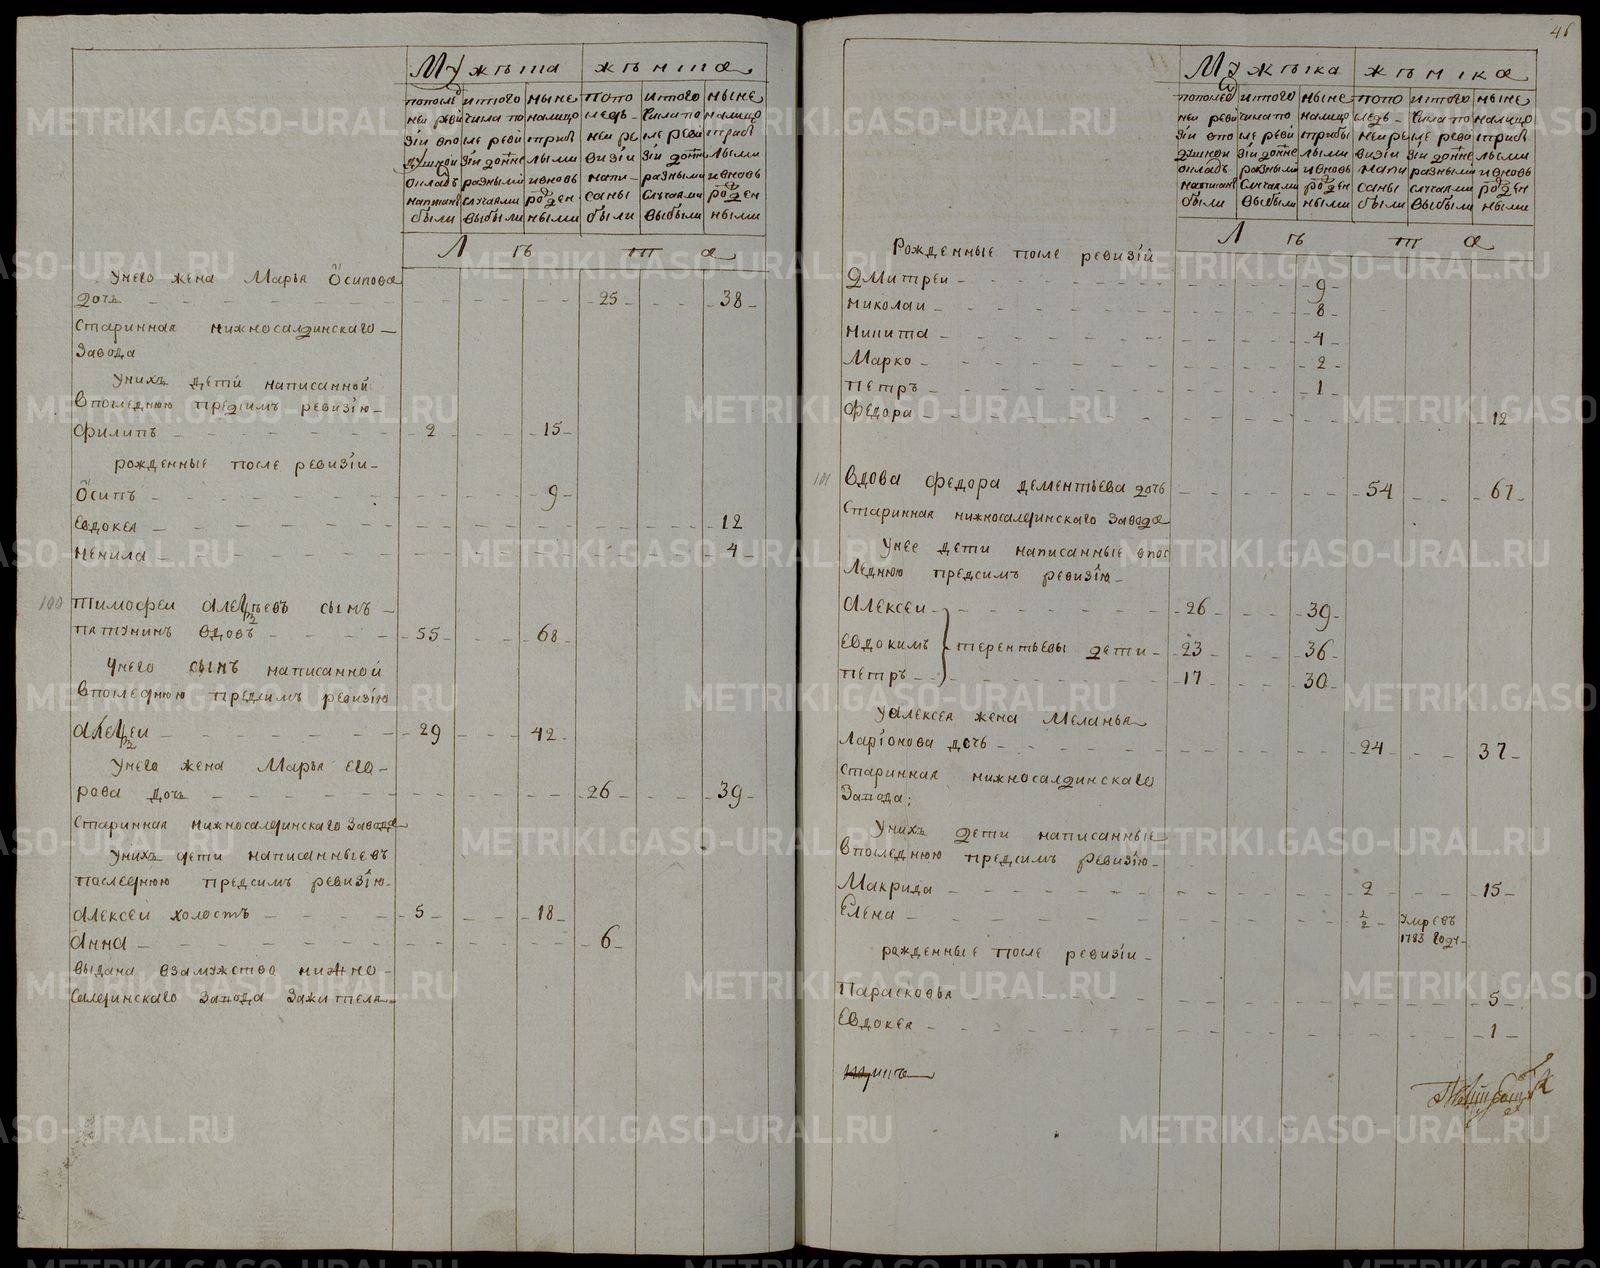 Мужѣска женска
попослѣд
ней реви
зіи впо
душной
окладъ
написаны
были
изтого
числа по
сле реви
зіи доне
разными
случаями
выбыли
ныне
налицо
сприб
лыми
ивновь
рожден
ными
попо
след
ней ре
визіи
напи
саны
были
изтого
числа по
сле реви
зіи донне
разными
случаями
выбыли
ныне
налицо
сприб
лыми
ивновь
рожден
ными
Л ѣ т а
Унего жена Марья Осипова
дочь 25 38
Старинная нижносалдинскаго
завода
Унихъ дети написанной
впоследнюю предсимъ ревизію
Филипъ 2 15
рожденные после ревизіи
Осипъ 9
Евдокея 12
Ненила 4
100 Тимофеи Алексѣевъ сынъ
Патунинъ вдовъ 55 68
Унего сынъ написанной
впоследнюю предсимъ ревизію
29 42
Унего жена Марья его
рова дочь 26 39
Старинная нижносалдинскаго завода
Унихъ дети написанные въ
последнюю предсимъ ревизію
Алексеи холостъ 5 18
Анна 6
выдана взамужство нижно
салдинскаго завода зажителя
46
Мужеска женска
попослед
ней реви
зіи впо
душной
окладъ
написаны
были
изтого
числа по
сле реви
зіи донне
разными
случаями
выбыли
ныне
налицо
сприбы
лыми
ивновь
рожден
ными
попо
следъ
ней ре
визіи
напи
саны
были
изтого
числа по
сле реви
зіи донне
разными
случаями
выбыли
ныне
налицо
сприб
лыми
ивновь
рожден
ными
Л ѣ т а
Рожденные после ревизіи
Дмитреи 9
Николаи 8
Никита 4
Марко 2
Петръ 1
Федора 12
101 Вдова Федора дементьева дочь 54 67
Старинная нижносалдинскаго завода
Унее дети написанные впос
леднюю предсимъ ревизію
Алексеи 26 39
Евдокимъ терентьевы дети 23 36
Петръ 17 30
Уалексея жена Меланья
Ларіонова дочь 24 37
Старинная нижносалдинскаго
завода;
Унихъ дети написанные
впоследнюю предсимъ ревизію
Макрида 2 15
Елена 1/2 умре въ
1783 году
рожденные после ревизіи
Парасковья 5
Евдокея 1
METRIKI.GASO-URAL.RU